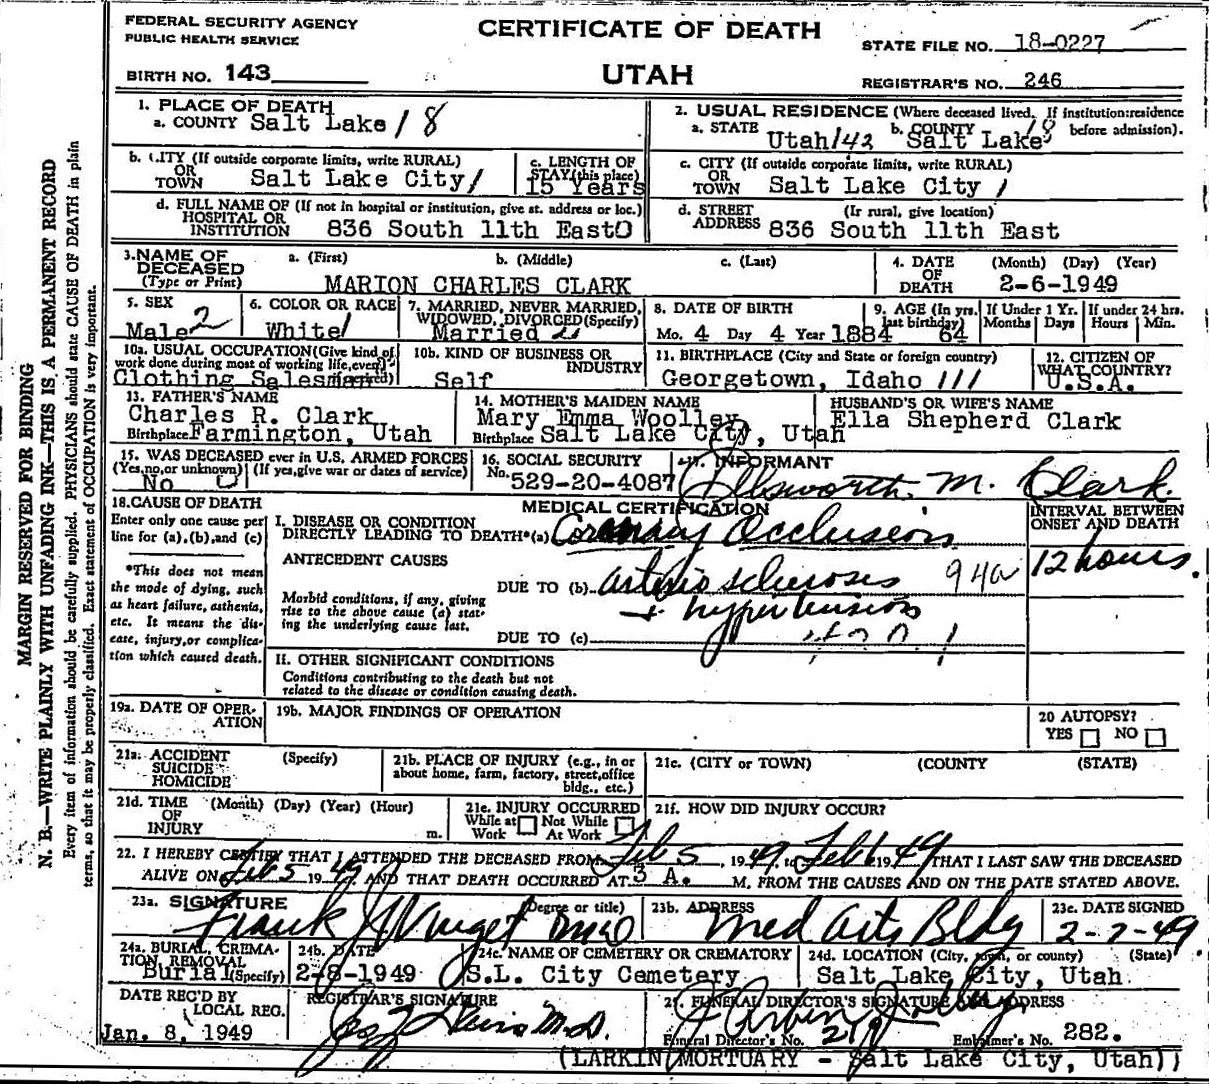 FEDERAL SECURITY AGENCY
PUBLIC HEALTH SERVICE
CERTIFICATE OF DEATH
STATE FILE NO. 18-0227
BIRTH NO. 143
UTAH
REGISTRAR'S NO. 246
1. PLACE OF DEATH
a. COUNTY Salt Lake / 8
2. USUAL RESIDENCE (Where deceased lived. If institution: residence before admission).
a. STATE Utah/42 b. COUNTY Salt Lake 18
b. CITY (If outside corporate limits, write RURAL)
OR TOWN Salt Lake City/
c. LENGTH OF STAY (this place) 15 Years
c. CITY (If outside corporate limits, write RURAL)
OR TOWN Salt Lake City /
d. FULL NAME OF (If not in hospital or institution, give st. address or loc.)
HOSPITAL OR INSTITUTION 836 South 11th East 0
d. STREET ADDRESS (If rural, give location)
836 South 11th East
3. NAME OF DECEASED (Type or Print)
a. (First) b. (Middle) c. (Last)
MARION CHARLES CLARK
4. DATE OF DEATH (Month) (Day) (Year)
2-6-1949
5. SEX Male 2
6. COLOR OR RACE White 1
7. MARRIED, NEVER MARRIED, WIDOWED, DIVORCED (Specify) Married 2
8. DATE OF BIRTH
Mo. 4 Day 4 Year 1884
9. AGE (In yrs. last birthday) 64
If Under 1 Yr. Months Days
If under 24 hrs. Hours Min.
10a. USUAL OCCUPATION (Give kind of work done during most of working life, even if retired)
Clothing Salesman
10b. KIND OF BUSINESS OR INDUSTRY
Self
11. BIRTHPLACE (City and State or foreign country)
Georgetown, Idaho 111
12. CITIZEN OF WHAT COUNTRY?
U.S.A.
13. FATHER'S NAME
Charles R. Clark
Birthplace Farmington, Utah
14. MOTHER'S MAIDEN NAME
Mary Emma Woolley
Birthplace Salt Lake City, Utah
HUSBAND'S OR WIFE'S NAME
Ella Shepherd Clark
15. WAS DECEASED ever in U.S. ARMED FORCES
(Yes, no, or unknown) (If yes, give war or dates of service)
No 0
16. SOCIAL SECURITY
No. 529-20-4087
17. INFORMANT
Ellsworth M. Clark
18. CAUSE OF DEATH
Enter only one cause per line for (a), (b), and (c)
*This does not mean the mode of dying, such as heart failure, asthenia, etc. It means the disease, injury, or complication which caused death.
MEDICAL CERTIFICATION
INTERVAL BETWEEN ONSET AND DEATH
I. DISEASE OR CONDITION DIRECTLY LEADING TO DEATH*(a) Coronary Occlusion
12 hours.
ANTECEDENT CAUSES
DUE TO (b) arterio sclerosis 94a
Morbid conditions, if any, giving rise to the above cause (a) stating the underlying cause last.
+ hypertension
DUE TO (c)
II. OTHER SIGNIFICANT CONDITIONS
Conditions contributing to the death but not related to the disease or condition causing death.
19a. DATE OF OPERATION
19b. MAJOR FINDINGS OF OPERATION
20 AUTOPSY?
YES NO
21a. ACCIDENT SUICIDE HOMICIDE (Specify)
21b. PLACE OF INJURY (e.g., in or about home, farm, factory, street, office bldg., etc.)
21c. (CITY or TOWN) (COUNTY) (STATE)
21d. TIME OF INJURY (Month) (Day) (Year) (Hour) m.
21e. INJURY OCCURRED
While at Work Not While At Work
21f. HOW DID INJURY OCCUR?
22. I HEREBY CERTIFY THAT I ATTENDED THE DECEASED FROM Feb 5, 1949 to Feb 6 1949 THAT I LAST SAW THE DECEASED
ALIVE ON Feb 5 1949 AND THAT DEATH OCCURRED AT 3 A. M. FROM THE CAUSES AND ON THE DATE STATED ABOVE.
23a. SIGNATURE (Degree or title)
Frank J
23b. ADDRESS
Med Arts Bldg
23c. DATE SIGNED
2-7-49
24a. BURIAL, CREMATION, REMOVAL (Specify)
Burial
24b. DATE
2-8-1949
24c. NAME OF CEMETERY OR CREMATORY
S.L. City Cemetery
24d. LOCATION (City, town, or county) (State)
Salt Lake City, Utah
DATE REC'D BY LOCAL REG.
Jan. 8, 1949
REGISTRAR'S SIGNATURE
M.D.
25. FUNERAL DIRECTOR'S SIGNATURE AND ADDRESS
Funeral Director's No. Embalmer's No. 282.
(LARKIN MORTUARY - Salt Lake City, Utah)
MARGIN RESERVED FOR BINDING
N. B.—WRITE PLAINLY WITH UNFADING INK—THIS IS A PERMANENT RECORD
Every item of information should be carefully supplied. PHYSICIANS should state CAUSE OF DEATH in plain
terms, so that it may be properly classified. Exact statement of OCCUPATION is very important.